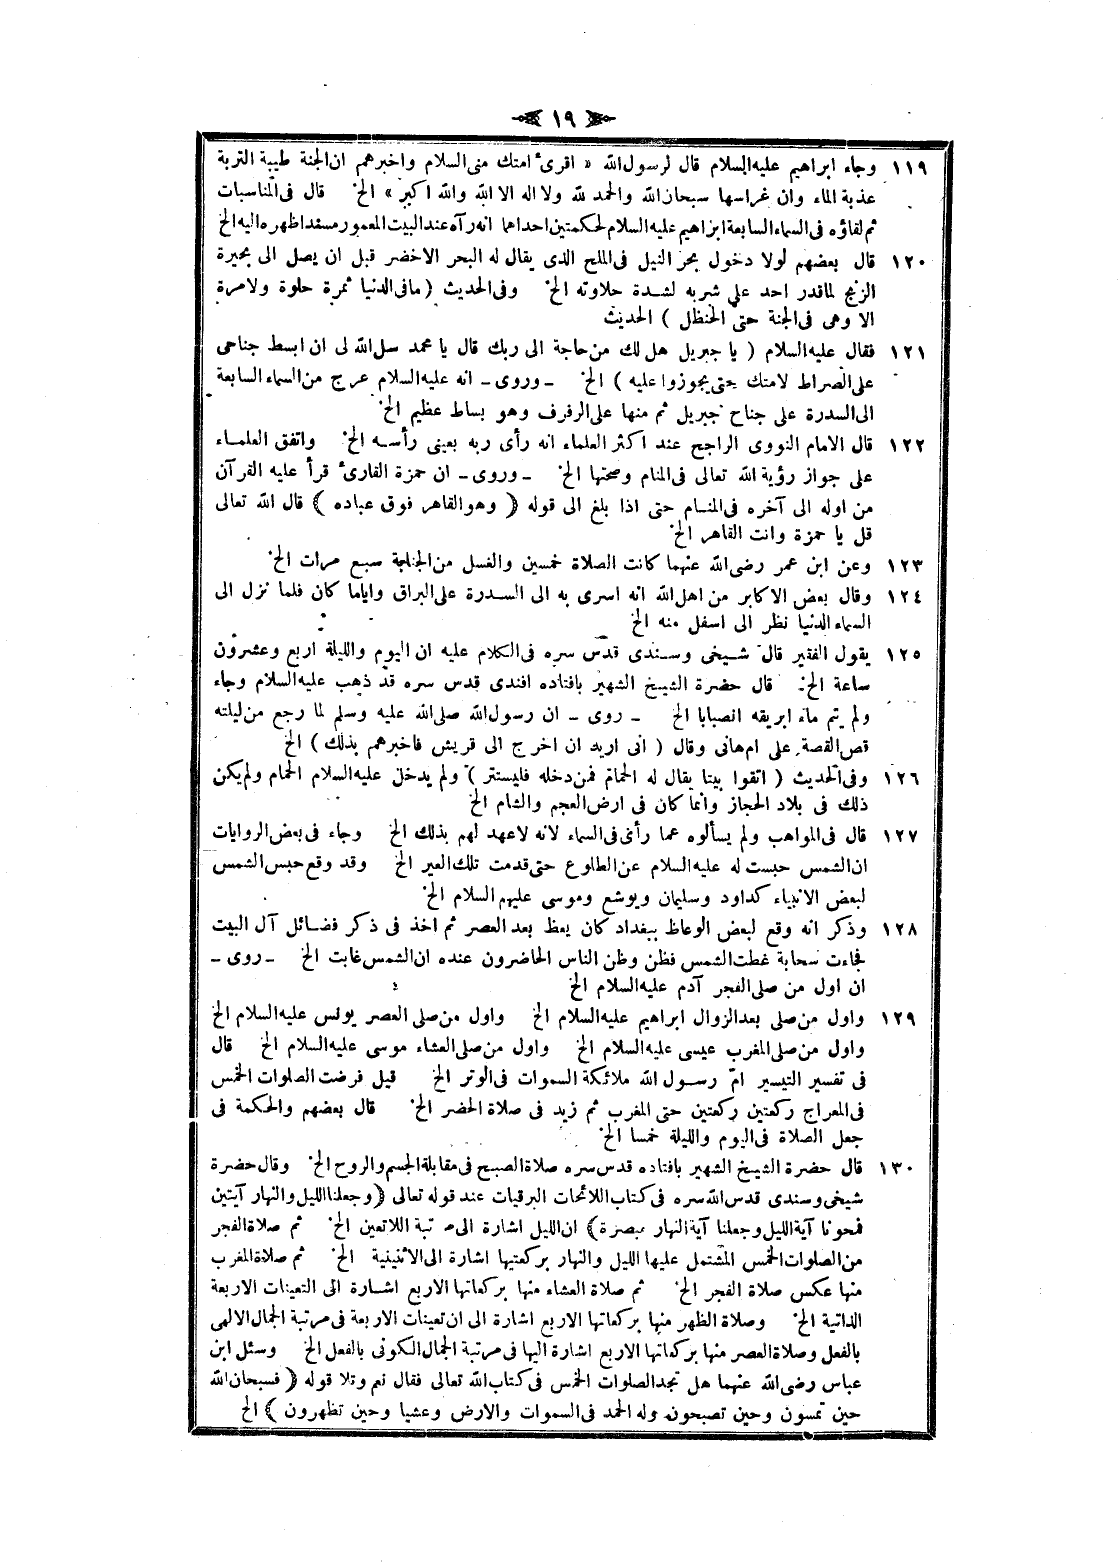 ١٩
١١٩ وجاء ابراهيم عليه السلام قال لرسول الله « اقرئ امتك منى السلام واخبرهم ان الجنة طيبة التربة
عذبة الماء وان غراسها سبحان الله والحمد لله ولا اله الا الله والله اكبر » الخ قال فى المناسبات
ثم لقاؤه فى السماء السابعة ابراهيم عليه السلام لحكمتين احداهما انه رآه عند البيت المعمور مسندا ظهره اليه الخ
١٢٠ قال بعضهم لولا دخول بحر النيل فى الملح الذى يقال له البحر الاخضر قبل ان يصل الى بحيرة
الزنج لما قدر احد على شربه لشدة حلاوته الخ وفى الحديث ( مافى الدنيا ثمرة حلوة ولا مرة
الا وهى فى الجنة حتى الحنظل ) الحديث
١٢١ فقال عليه السلام ( يا جبريل هل لك من حاجة الى ربك قال يا محمد سل الله لى ان ابسط جناحى
على الصراط لامتك حتى يجوزوا عليه ) الخ ـ وروى ـ انه عليه السلام عرج من السماء السابعة
الى السدرة على جناح جبريل ثم منها على الرفرف وهو بساط عظيم الخ
١٢٢ قال الامام النووى الراجح عند اكثر العلماء انه رأى ربه بعينى رأسه الخ واتفق العلماء
على جواز رؤية الله تعالى فى المنام وصحتها الخ ـ وروى ـ ان حمزة القارئ قرأ عليه القرآن
من اوله الى آخره فى المنام حتى اذا بلغ الى قوله ﴿ وهو القاهر فوق عباده ﴾ قال الله تعالى
قل يا حمزة وانت القاهر الخ
١٢٣ وعن ابن عمر رضى الله عنهما كانت الصلاة خمسين والغسل من الجنابة سبع مرات الخ
١٢٤ وقال بعض الاكابر من اهل الله انه اسرى به الى السدرة على البراق واياما كان فلما نزل الى
السماء الدنيا نظر الى اسفل منه الخ
١٢٥ يقول الفقير قال شيخى وسندى قدس سره فى الكلام عليه ان اليوم والليلة اربع وعشرون
ساعة الخ قال حضرة الشيخ الشهير بافتاده افندى قدس سره قد ذهب عليه السلام وجاء
ولم يتم ماء ابريقه انصبابا الخ ـ روى ـ ان رسول الله صلى الله عليه وسلم لما رجع من ليلته
قص القصة على ام هانى وقال ( انى اريد ان اخرج الى قريش فاخبرهم بذلك ) الخ
١٢٦ وفى الحديث ( اتقوا بيتا يقال له الحمام فمن دخله فليستتر ) ولم يدخل عليه السلام الحمام ولم يكن
ذلك فى بلاد الحجاز وانما كان فى ارض العجم والشام الخ
١٢٧ قال فى المواهب ولم يسألوه عما رأى فى السماء لانه لا عهد لهم بذلك الخ وجاء فى بعض الروايات
ان الشمس حبست له عليه السلام عن الطلوع حتى قدمت تلك العير الخ وقد وقع حبس الشمس
لبعض الانبياء كداود وسليمان ويوشع وموسى عليهم السلام الخ
١٢٨ وذكر انه وقع لبعض الوعاظ ببغداد كان يعظ بعد العصر ثم اخذ فى ذكر فضائل آل البيت
فجاءت سحابة غطت الشمس فظن وظن الناس الحاضرون عنده ان الشمس غابت الخ ـ روى ـ
ان اول من صلى الفجر آدم عليه السلام الخ
١٢٩ واول من صلى بعد الزوال ابراهيم عليه السلام الخ واول من صلى العصر يونس عليه السلام الخ
واول من صلى المغرب عيسى عليه السلام الخ واول من صلى العشاء موسى عليه السلام الخ قال
فى تفسير التيسير ام رسول الله ملائكة السموات فى الوتر الخ قيل فرضت الصلوات الخمس
فى المعراج ركعتين ركعتين حتى المغرب ثم زيد فى صلاة الحضر الخ قال بعضهم والحكمة فى
جعل الصلاة فى اليوم والليلة خمسا الخ
١٣٠ قال حضرة الشيخ الشهير بافتاده قدس سره صلاة الصبح فى مقابلة الجسم والروح الخ وقال حضرة
شيخى وسندى قدس الله سره فى كتاب اللائحات البرقيات عند قوله تعالى ﴿ وجعلنا الليل والنهار آيتين
فمحونا آية الليل وجعلنا آية النهار مبصرة ﴾ ان الليل اشارة الى مرتبة اللاتعين الخ ثم صلاة الفجر
من الصلوات الخمس المشتمل عليها الليل والنهار بركعتيها اشارة الى الاثنينية الخ ثم صلاة المغرب
منها عكس صلاة الفجر الخ ثم صلاة العشاء منها بركعاتها الاربع اشارة الى التعينات الاربعة
الذاتية الخ وصلاة الظهر منها بركعاتها الاربع اشارة الى ان تعينات الاربعة فى مرتبة الجمال الالهى
بالفعل وصلاة العصر منها بركعاتها الاربع اشارة اليها فى مرتبة الجمال الكونى بالفعل الخ وسئل ابن
عباس رضى الله عنهما هل تجد الصلوات الخمس فى كتاب الله تعالى فقال نعم وتلا قوله ﴿ فسبحان الله
حين تمسون وحين تصبحون وله الحمد فى السموات والارض وعشيا وحين تظهرون ﴾ الخ